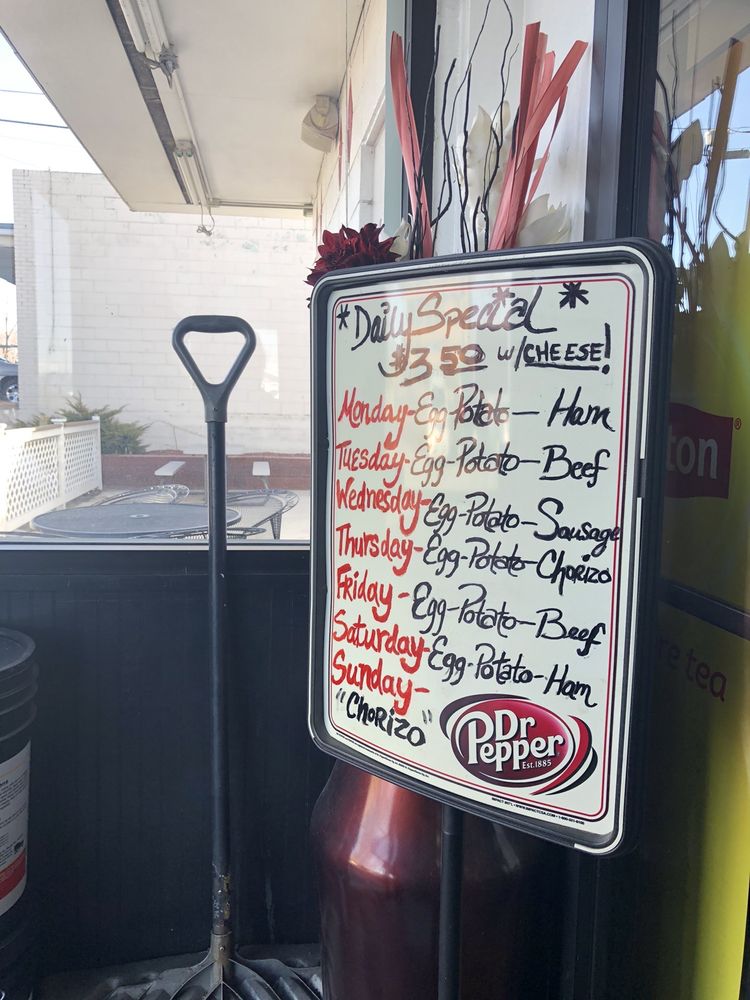 * Daily Special * *
$3.50 w/CHEESE!
Monday-Egg-Potato-Ham
Tuesday-Egg-Potato-Beef
Wednesday-Egg-Potato-Sausage
Thursday-Egg-Potato-Chorizo
Friday-Egg-Potato-Beef
Saturday-Egg-Potato-Ham
Sunday-
"Chorizo"
Dr
Pepper
Est.1885
ton®
tea